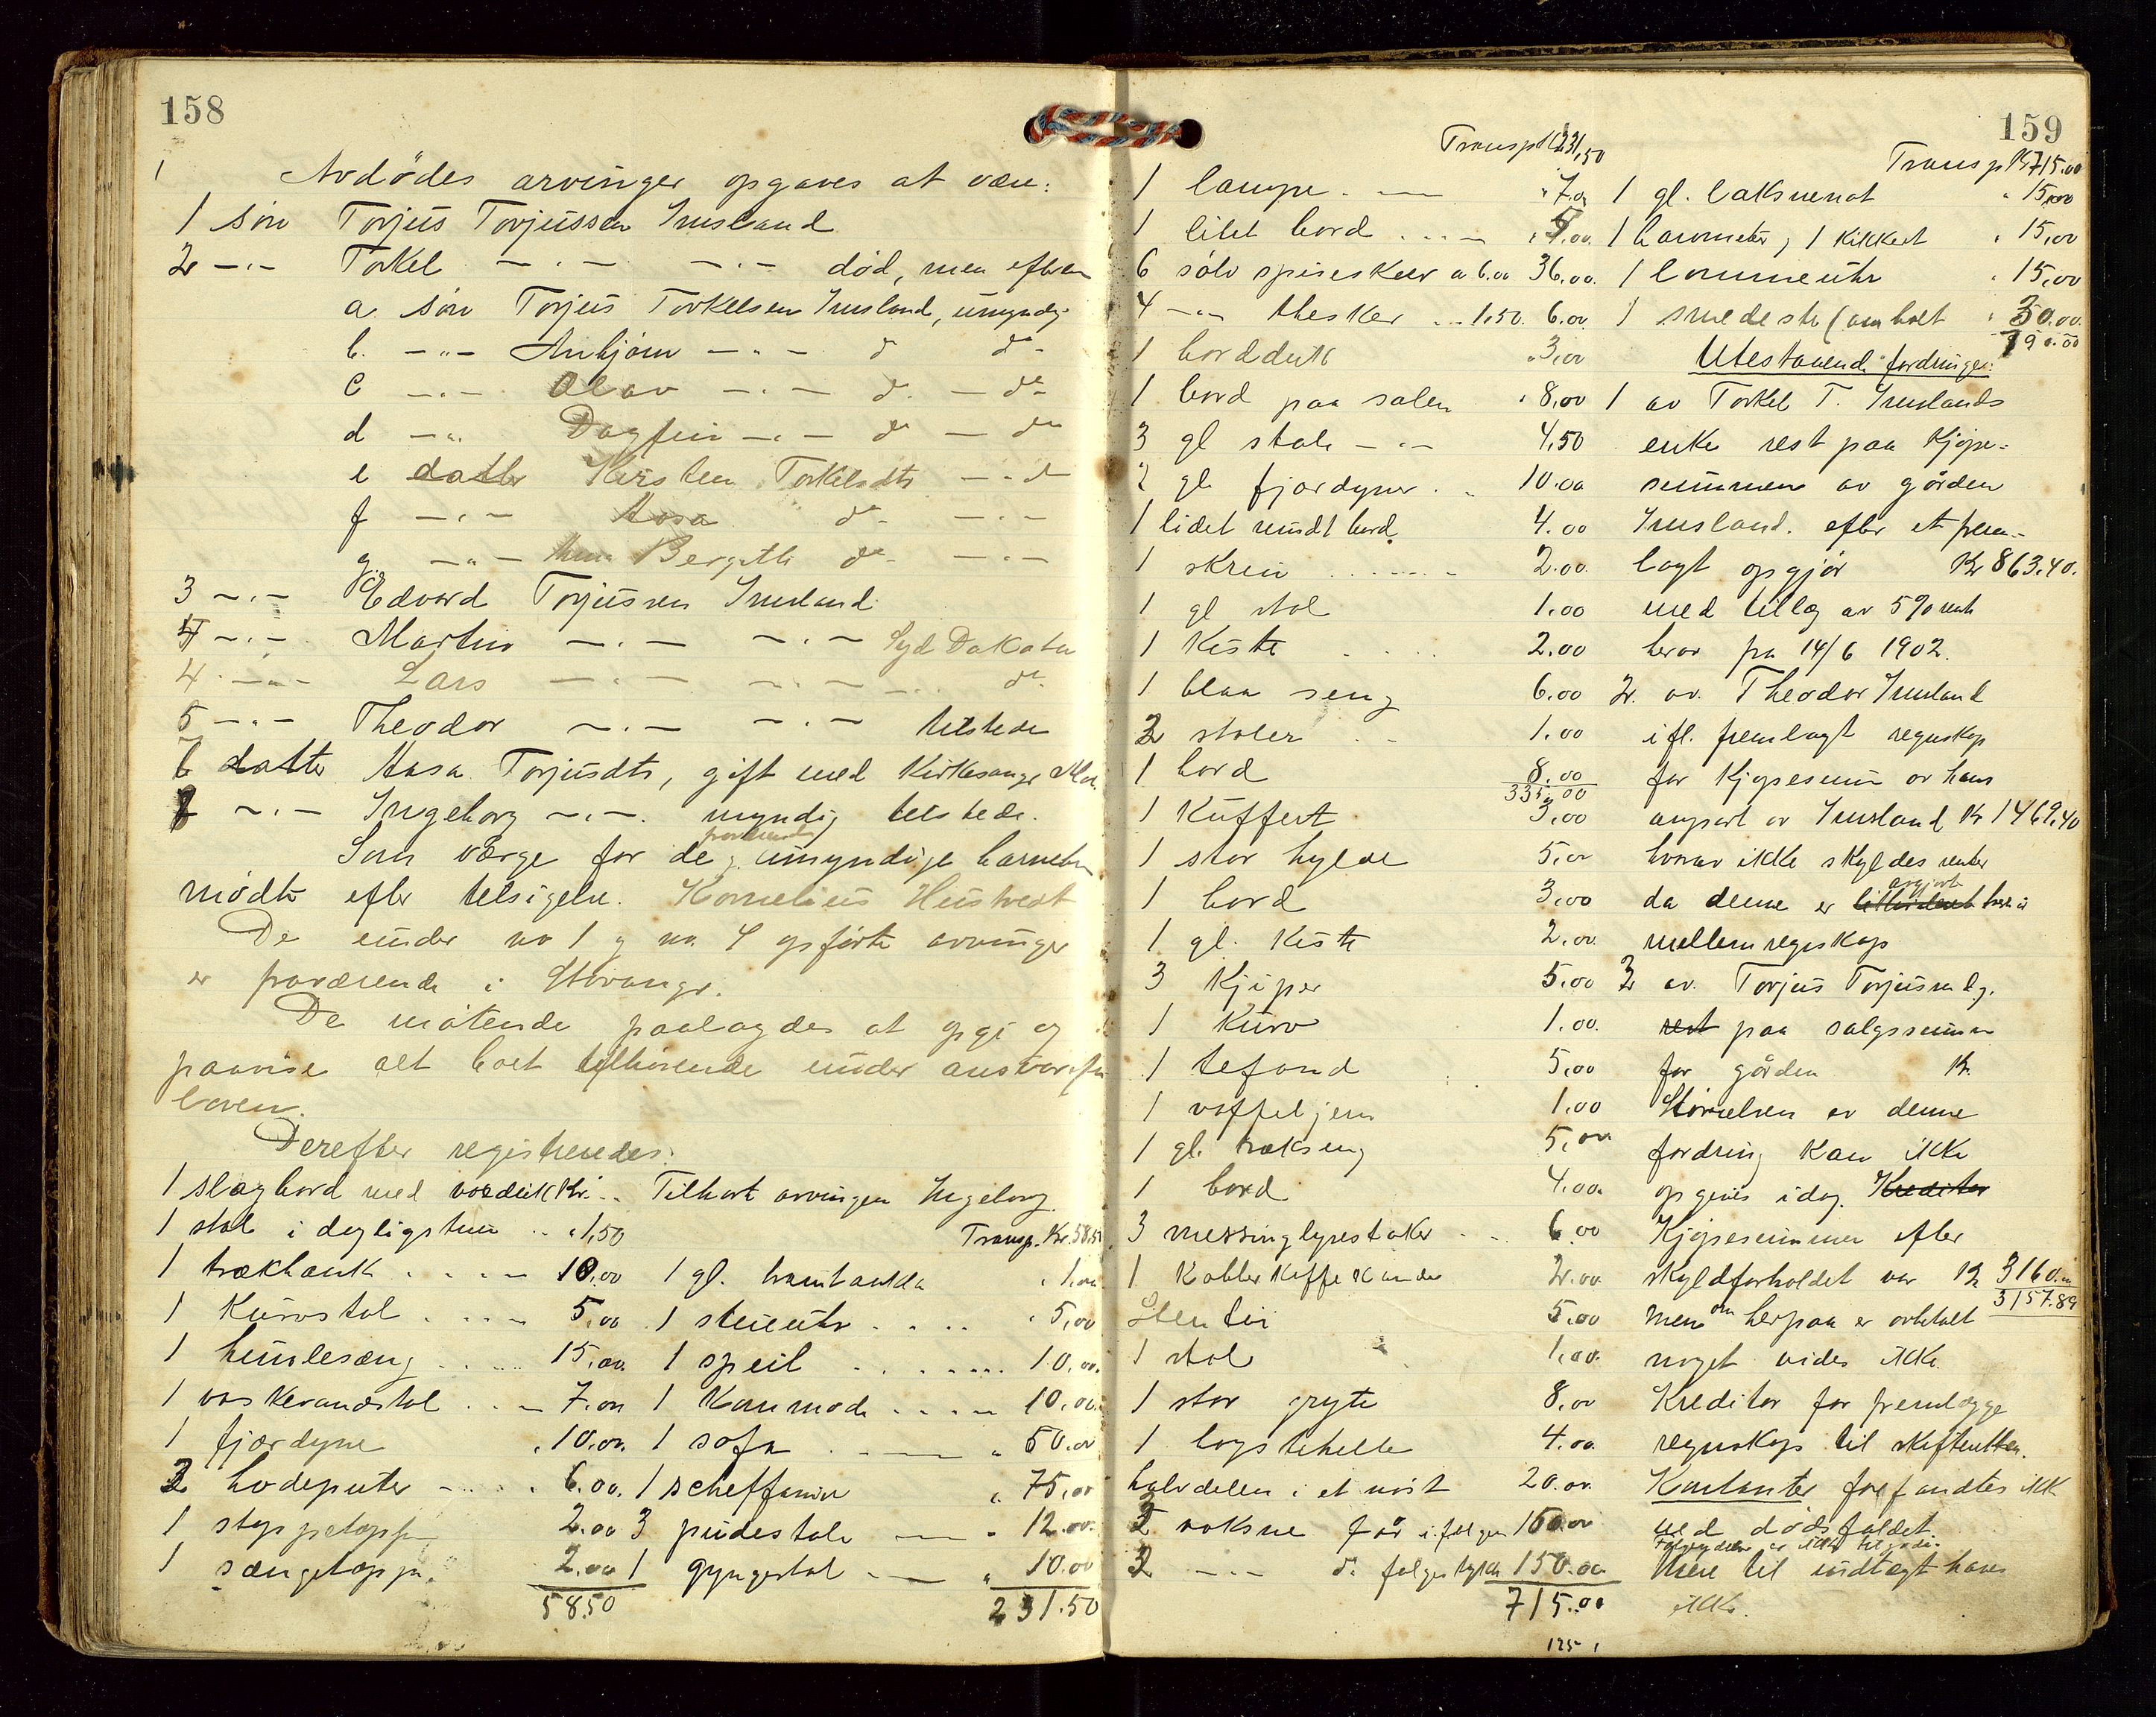 158
1 Avdødes arvinger opgaves at være:
1 søn Torjus Torjussen Imsland
2 -"- Torkel -"- -"- død, men efterl
a søn Torjus Torkelsen Imsland, umyndig
b. -"- Anbjørn -"- do do
c -"- Olav -"- do - do
d -"- Dagfin -"- do - do
e datter Kirsten Torkelsdtr -"- do
f -"- Aasa do -"-
g -"- Anna Bergitte do -"-
3 -"- Edvard Torjussen Imsland
4 -"- Martin -"- -"- Syd Dakota
4 -"- Lars -"- -"- do
5 -"- Theodor -"- -"- tilstede
6 datter Aasa Torjusdtr, gift med Kirkesanger
7 -"- Ingeborg -"- myndig tilstede.
Som værge for de umyndige barnebørn
mødte efter tilsigelse. Kornelius Hustvedt
De under no 1 og no 4 opførte arvinger
er fraværende i Stavanger.
De møtende paalagdes at opgi og
paavise alt boet tilhørende under ansvar efter
loven.
Derefter registreredes:
1 slagbord med voxduk Kr. -- Tilhørte arvingen Ingeborg
1 stol i dagligstuen -- " 1,50
Transp. Kr. 58,50
1 trækbænk - - - - 10.00 1 gl. " 1.00
1 Kurvstol - - - - 5,00 1 stueuhr - - - - " 5,00
1 himlesæng - - - 15,00 1 speil - - - - 10.00
1 vaskevandstol - - - 7.00 1 Kommode - - - - 10,00
1 fjærdyne " 10,00 1 sofa - - - " 50.00
3 hodeputer - - - " 6.00. 1 scheffanier " 75,00
1 stoppetæppe 2.00 3 pudestole - - " 12.00
1 sængetæppe. 2.00 1 gyngestol - - " 10.00
58.50 231.50
159
Transp K 231,50
1 lampe - - " 7.00
1 litet bord - - - - " 5.00
6 sølv spiseskeer a 6.00 36.00
4 -"- theskeer - - 1.50. 6.00
1 borddug " 3,00
1 bord paa salen " 8,00
3 gl stole - - 4,50
2 gl. fjærdyner - - 10.00
1 lidet rundt bord. 4.00
1 skrin - - - - 2.00
1 gl stol 1.00
1 Kiste - - - - 2.00
1 blaa seng 6.00
2 stoler - - 1.00
1 bord 8.00
335,00
1 Kuffert 3,00
1 stor hylde 5,00
1 bord 3,00
1 gl. Kiste 2.00
3 Kjiper 5.00
1 Kurv 1.00
1 tefond 5,00
1 vaffeljern 1.00
1 gl. trækseng 5,00
1 bord 4.00
3 messinglysestaker - - 6.00
1 Kobberkaffekande 2.00
Stentøi 5.00
1 stol 1,00
1 stor gryte 8,00
1 bagstehelle 4.00
halvdelen i et nøst 20.00
2 voksne får i følgen 150.00
2 -"- do 150.00
715.00
125 1
Transp K 715.00
1 gl. laksenot " 15,00
1 barometer, 1 kikkert " 15,00
1 lommeuhr " 15,00
1 smedeste (ambolt " 30.00
790.00
Utestaaende fordringer:
1 av Torkel T. Imslands
enke rest paa Kjøpe=
summen av gården
Imsland. efter et frem-
lagt opgjør Kr 863.40.
med tillæg av 5% rente
herav fra 14/6 1902.
2. av. Theodor Imsland
ifl. fremlagt regnskap
for Kjøpesum av hans
anpart av Imsland Kr 1469.40
hvorav ikke skyldes renter
da denne er avgjort
mellemregnskap
3 av. Torjus Torjussen
rest paa salgssummen
for gården Kr.
Størrelsen av denne
fordring kan ikke
opgives idag. Kreditor
Kjøpesummen efter
skyldforholdet var Kr 3160.00
3157.89
men om herpaa er avbetalt
noget vides ikke.
Kreditor får fremlægge
regnskap til skifteretten.
Kontanter forefandtes ikke
ved dødsfaldet.
Mere til indtægt haves
ikke.